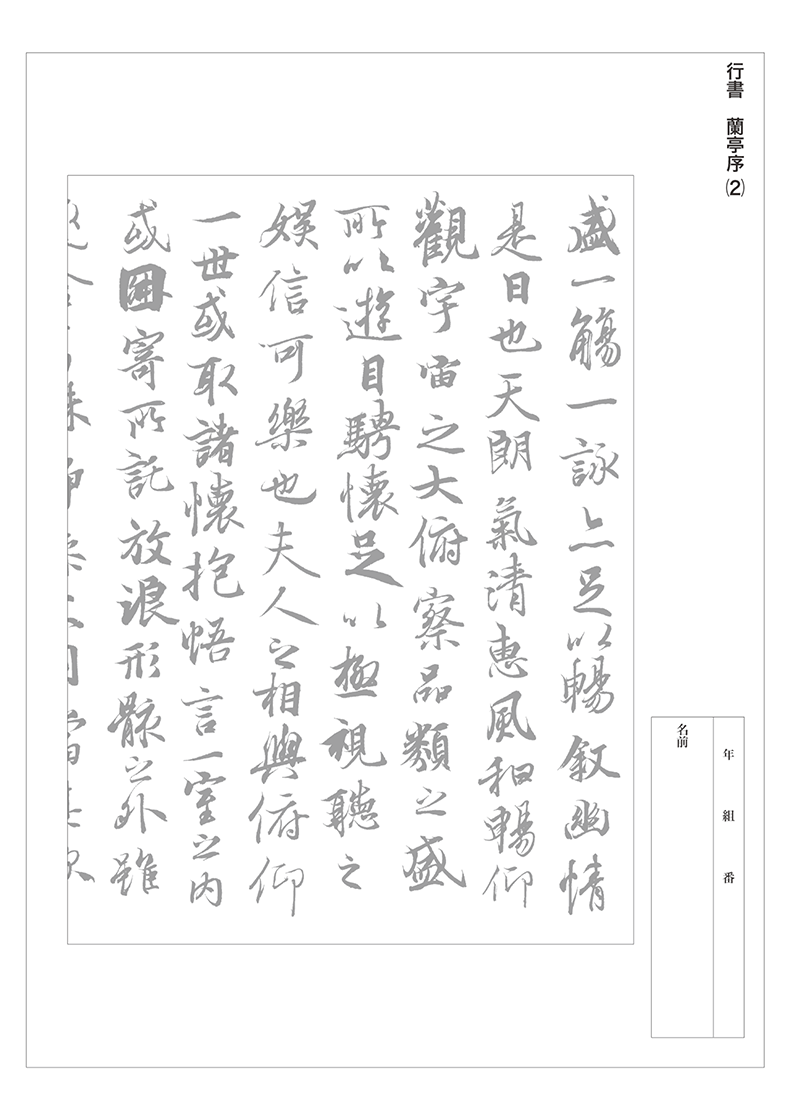 行書　蘭亭序(2)
盛一觴一詠亦足以暢叙幽情
是日也天朗氣清惠風和暢仰
觀宇宙之大俯察品類之盛
所以遊目騁懷足以極視聽之
娛信可樂也夫人之相與俯仰
一世或取諸懷抱悟言一室之内
或因寄所託放浪形骸之外雖
年　組　番
名前